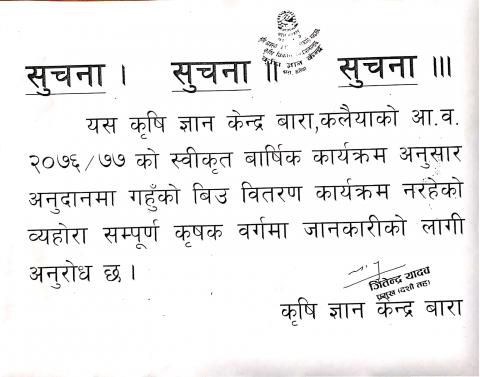 सुचना । सुचना ॥ सुचना ॥।
यस कृषि ज्ञान केन्द्र बारा,कलैयाको आ.व.
२०७६/७७ को स्वीकृत बार्षिक कार्यक्रम अनुसार
अनुदानमा गहुँको बिउ वितरण कार्यक्रम नरहेको
व्यहोरा सम्पूर्ण कृषक वर्गमा जानकारीको लागी
अनुरोध छ ।
जितेन्द्र यादव
प्रमुख (दशौ तह)
कृषि ज्ञान केन्द्र बारा